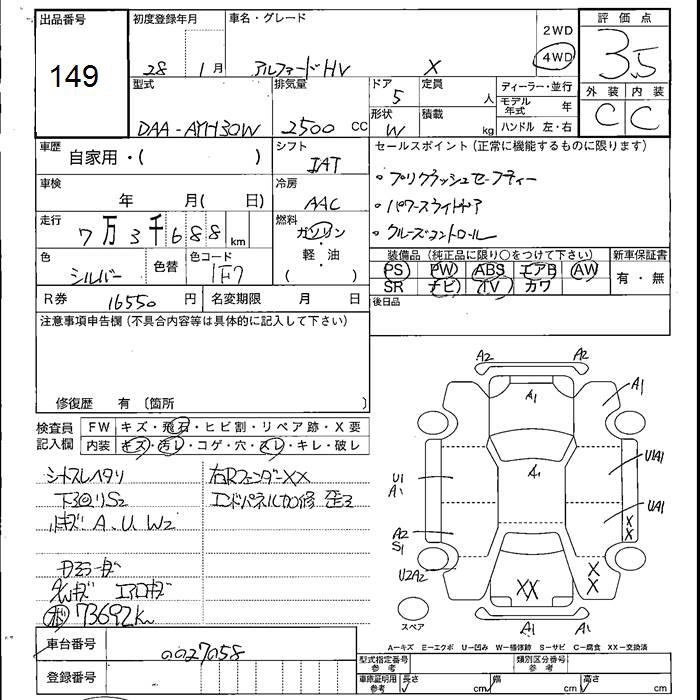 出品番号
149
初度登録年月
28 1月
車名・グレード
アルファードHV X
2WD
4WD
評価点
3.5
外装 内装
C C
型式
DAA-AYH30W
排気量
2500 CC
ドア
5
形状
W
定員
人
積載
kg
ディーラー・並行
モデル年式 年
ハンドル 左・右
車歴
自家用・( )
シフト
IAT
車検
年 月( 日)
冷房
AAC
走行
7万3千688 km
燃料
ガソリン
・
軽・油
( )
色
シルバー
色替
色コード
1F7
R券 16550 円
名変期限 月 日
セールスポイント (正常に機能するものに限ります)
・プリクラッシュセーフティー
・パワースライドドア
・クルーズコントロール
装備品 (純正品に限り○をつけて下さい)
PS PW ABS エアB AW
SR ナビ TV カワ
新車保証書
有・無
後日品
注意事項申告欄 (不具合内容等は具体的に記入して下さい)
修復歴 有 〔箇所 〕
検査員記入欄
FW キズ・飛石・ヒビ割・リペア跡・X要
内装 キズ・汚レ・コゲ・穴・スレ・キレ・破レ
シートスレヘタリ
下回りS2
A、U W2
右Rフェンダーxx
エンドパネル加修 歪ミ
73692km
車台番号
0027058
登録番号
A2 A2
A1 A1
A1
U1A1
U1
A1
UA1
A2
S1
XX
U2A2
XX XX
A1 A1
スペア
A=キズ E=エクボ U=凹み W=補修跡 S=サビ C=腐食 XX=交換済
型式指定番号 参考
類別区分番号 参考
車庫証明用 参考
長さ cm 幅 cm 高さ cm